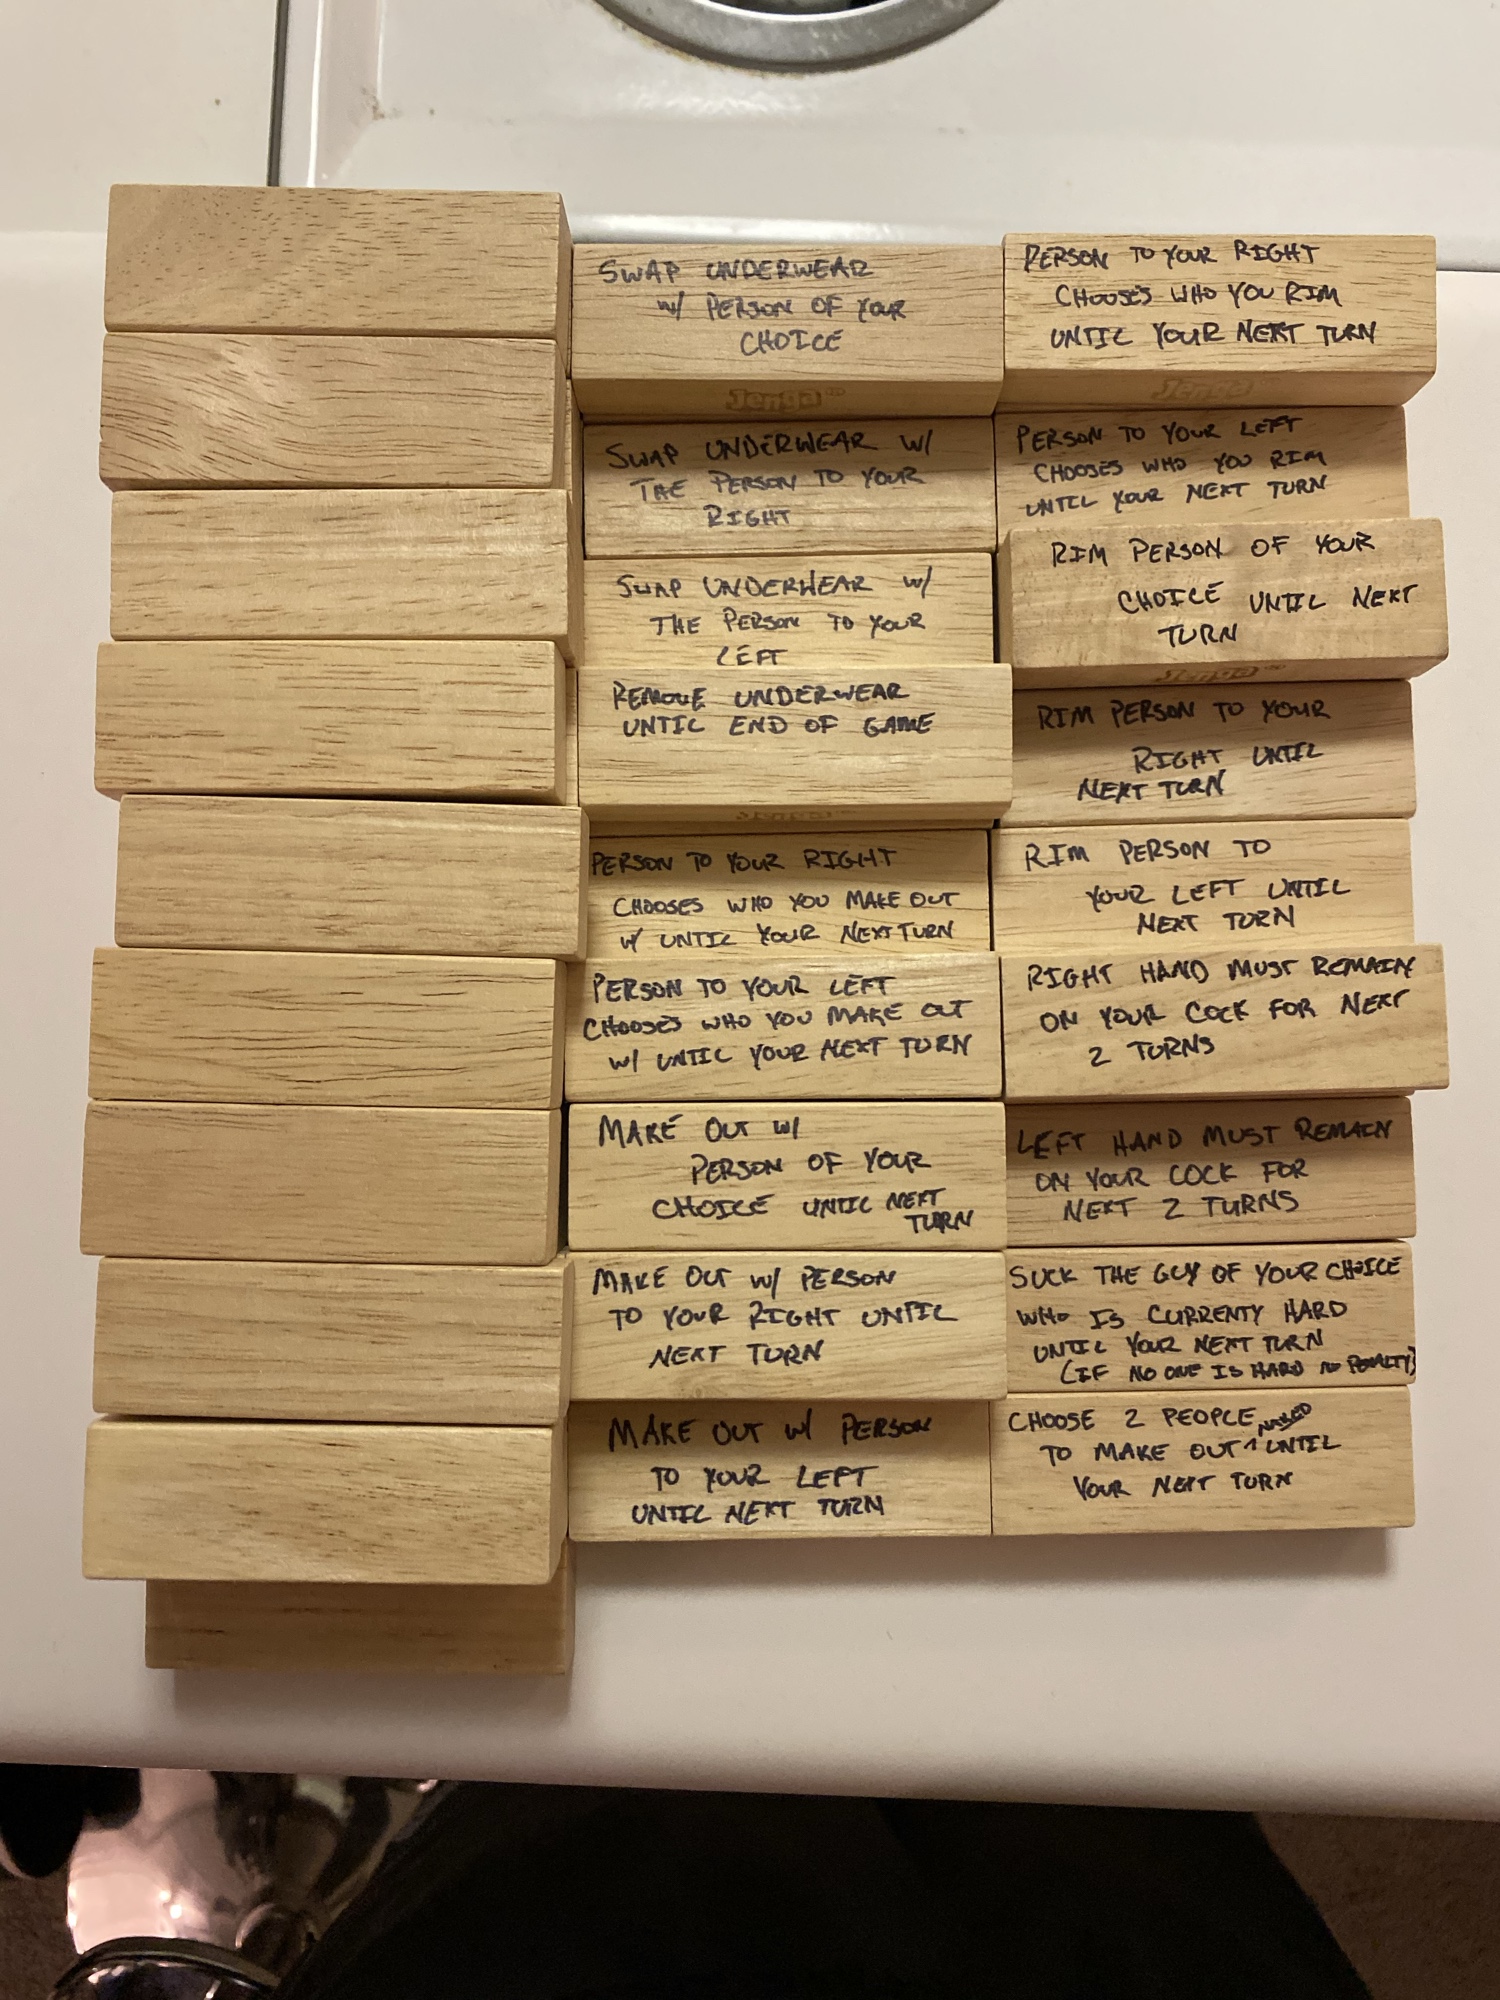 SWAP UNDERWEAR
w/ PERSON OF YOUR
CHOICE
Jenga®
SWAP UNDERWEAR W/
THE PERSON TO YOUR
RIGHT
SWAP UNDERWEAR w/
THE PERSON TO YOUR
LEFT
REMOVE UNDERWEAR
UNTIL END OF GAME
PERSON TO YOUR RIGHT
CHOOSES WHO YOU MAKE OUT
W/ UNTIL YOUR NEXT TURN
PERSON TO YOUR LEFT
CHOOSES WHO YOU MAKE OUT
W/ UNTIL YOUR NEXT TURN
MAKE OUT W/
PERSON OF YOUR
CHOICE UNTIL NEXT
TURN
MAKE OUT W/ PERSON
TO YOUR RIGHT UNTIL
NEXT TURN
MAKE OUT W/ PERSON
TO YOUR LEFT
UNTIL NEXT TURN
PERSON TO YOUR RIGHT
CHOOSES WHO YOU RIM
UNTIL YOUR NEXT TURN
Jenga®
PERSON TO YOUR LEFT
CHOOSES WHO YOU RIM
UNTIL YOUR NEXT TURN
RIM PERSON OF YOUR
CHOICE UNTIL NEXT
TURN
Jenga®
RIM PERSON TO YOUR
RIGHT UNTIL
NEXT TURN
RIM PERSON TO
YOUR LEFT UNTIL
NEXT TURN
RIGHT HAND MUST REMAIN
ON YOUR COCK FOR NEXT
2 TURNS
LEFT HAND MUST REMAIN
ON YOUR COCK FOR
NEXT 2 TURNS
SUCK THE GUY OF YOUR CHOICE
WHO IS CURRENTY HARD
UNTIL YOUR NEXT TURN
(IF NO ONE IS HARD NO PENALTY)
CHOOSE 2 PEOPLE
NAKED
TO MAKE OUT ^ UNTIL
YOUR NEXT TURN